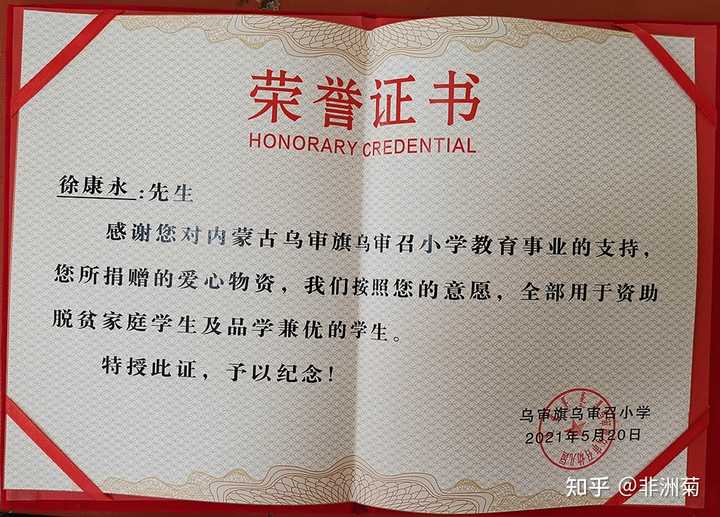 荣誉证书
HONORARY CREDENTIAL
徐康永:先生
感谢您对内蒙古乌审旗乌审召小学教育事业的支持，
您所捐赠的爱心物资，我们按照您的意愿，全部用于资助
脱贫家庭学生及品学兼优的学生。
特授此证，予以纪念！
乌审旗乌审召小学
2021年5月20日
知乎 @非洲菊